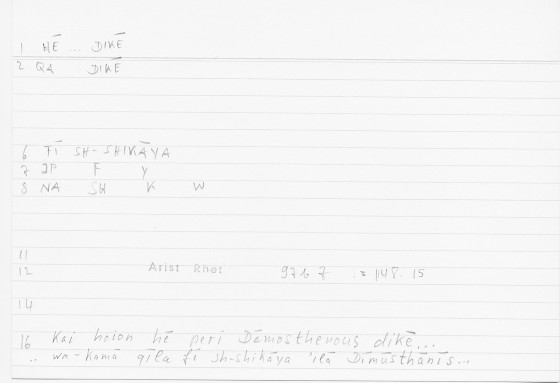 1 HĒ ... DIKĒ
2 QA DIKĒ
6 FĪ SH-SHIKĀYA
7 IF F Y
8 NA SH K W
11
12 Arist Rhet 97b 7 = 148.15
14
16 Kai hoion hē peri Dēmosthenous dikē...
.. wa-kamā qīla fī sh-shikāya 'ilā Dīmūsthānīs...